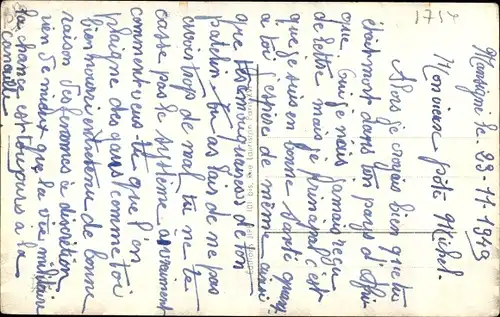 1754
Martigné le 23-11-1949
Mon vieux pôte Michel.
Alors je croyais bien que tu
était mort dans ton pays d'Afri
que. Oui je n'ais jamais reçu
de lettre mais le principal c'est
que je suis en bonne santé quant
a toi j'espère de même ainsi
que de ton
patelin. Tu as l'air de ne pas
trop de mal tu ne te
casse pas le système vraiment
comment veus-tu que l'on
plaigne des gars comme toi
bien nourri entretenu de bonne
raison des femmes a discrétion
rien de mieux que la vie militaire
la chance est toujours a la
canaille